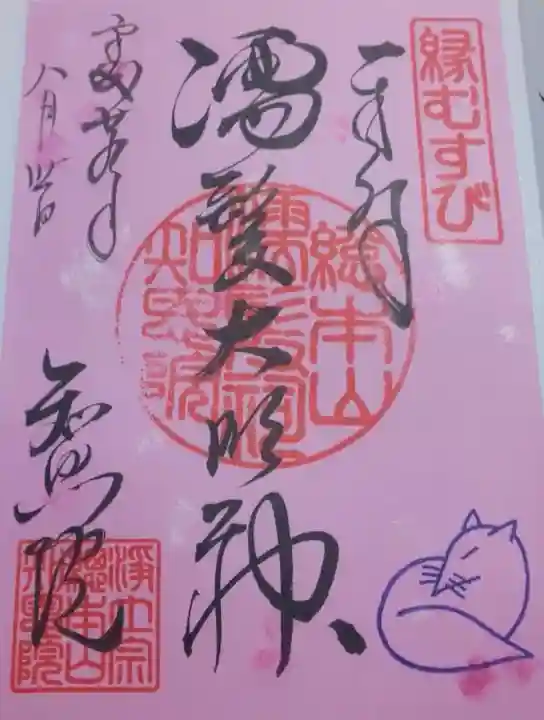 縁むすび
奉拝
濡髪大明神
総本山
濡髪祠
知恩院
八月廿日
知恩院
浄土宗
總本山
知恩院